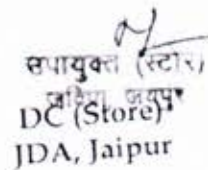 उपायुक्त (स्टोर)
जविप्रा, जयपुर
DC (Store)
JDA, Jaipur